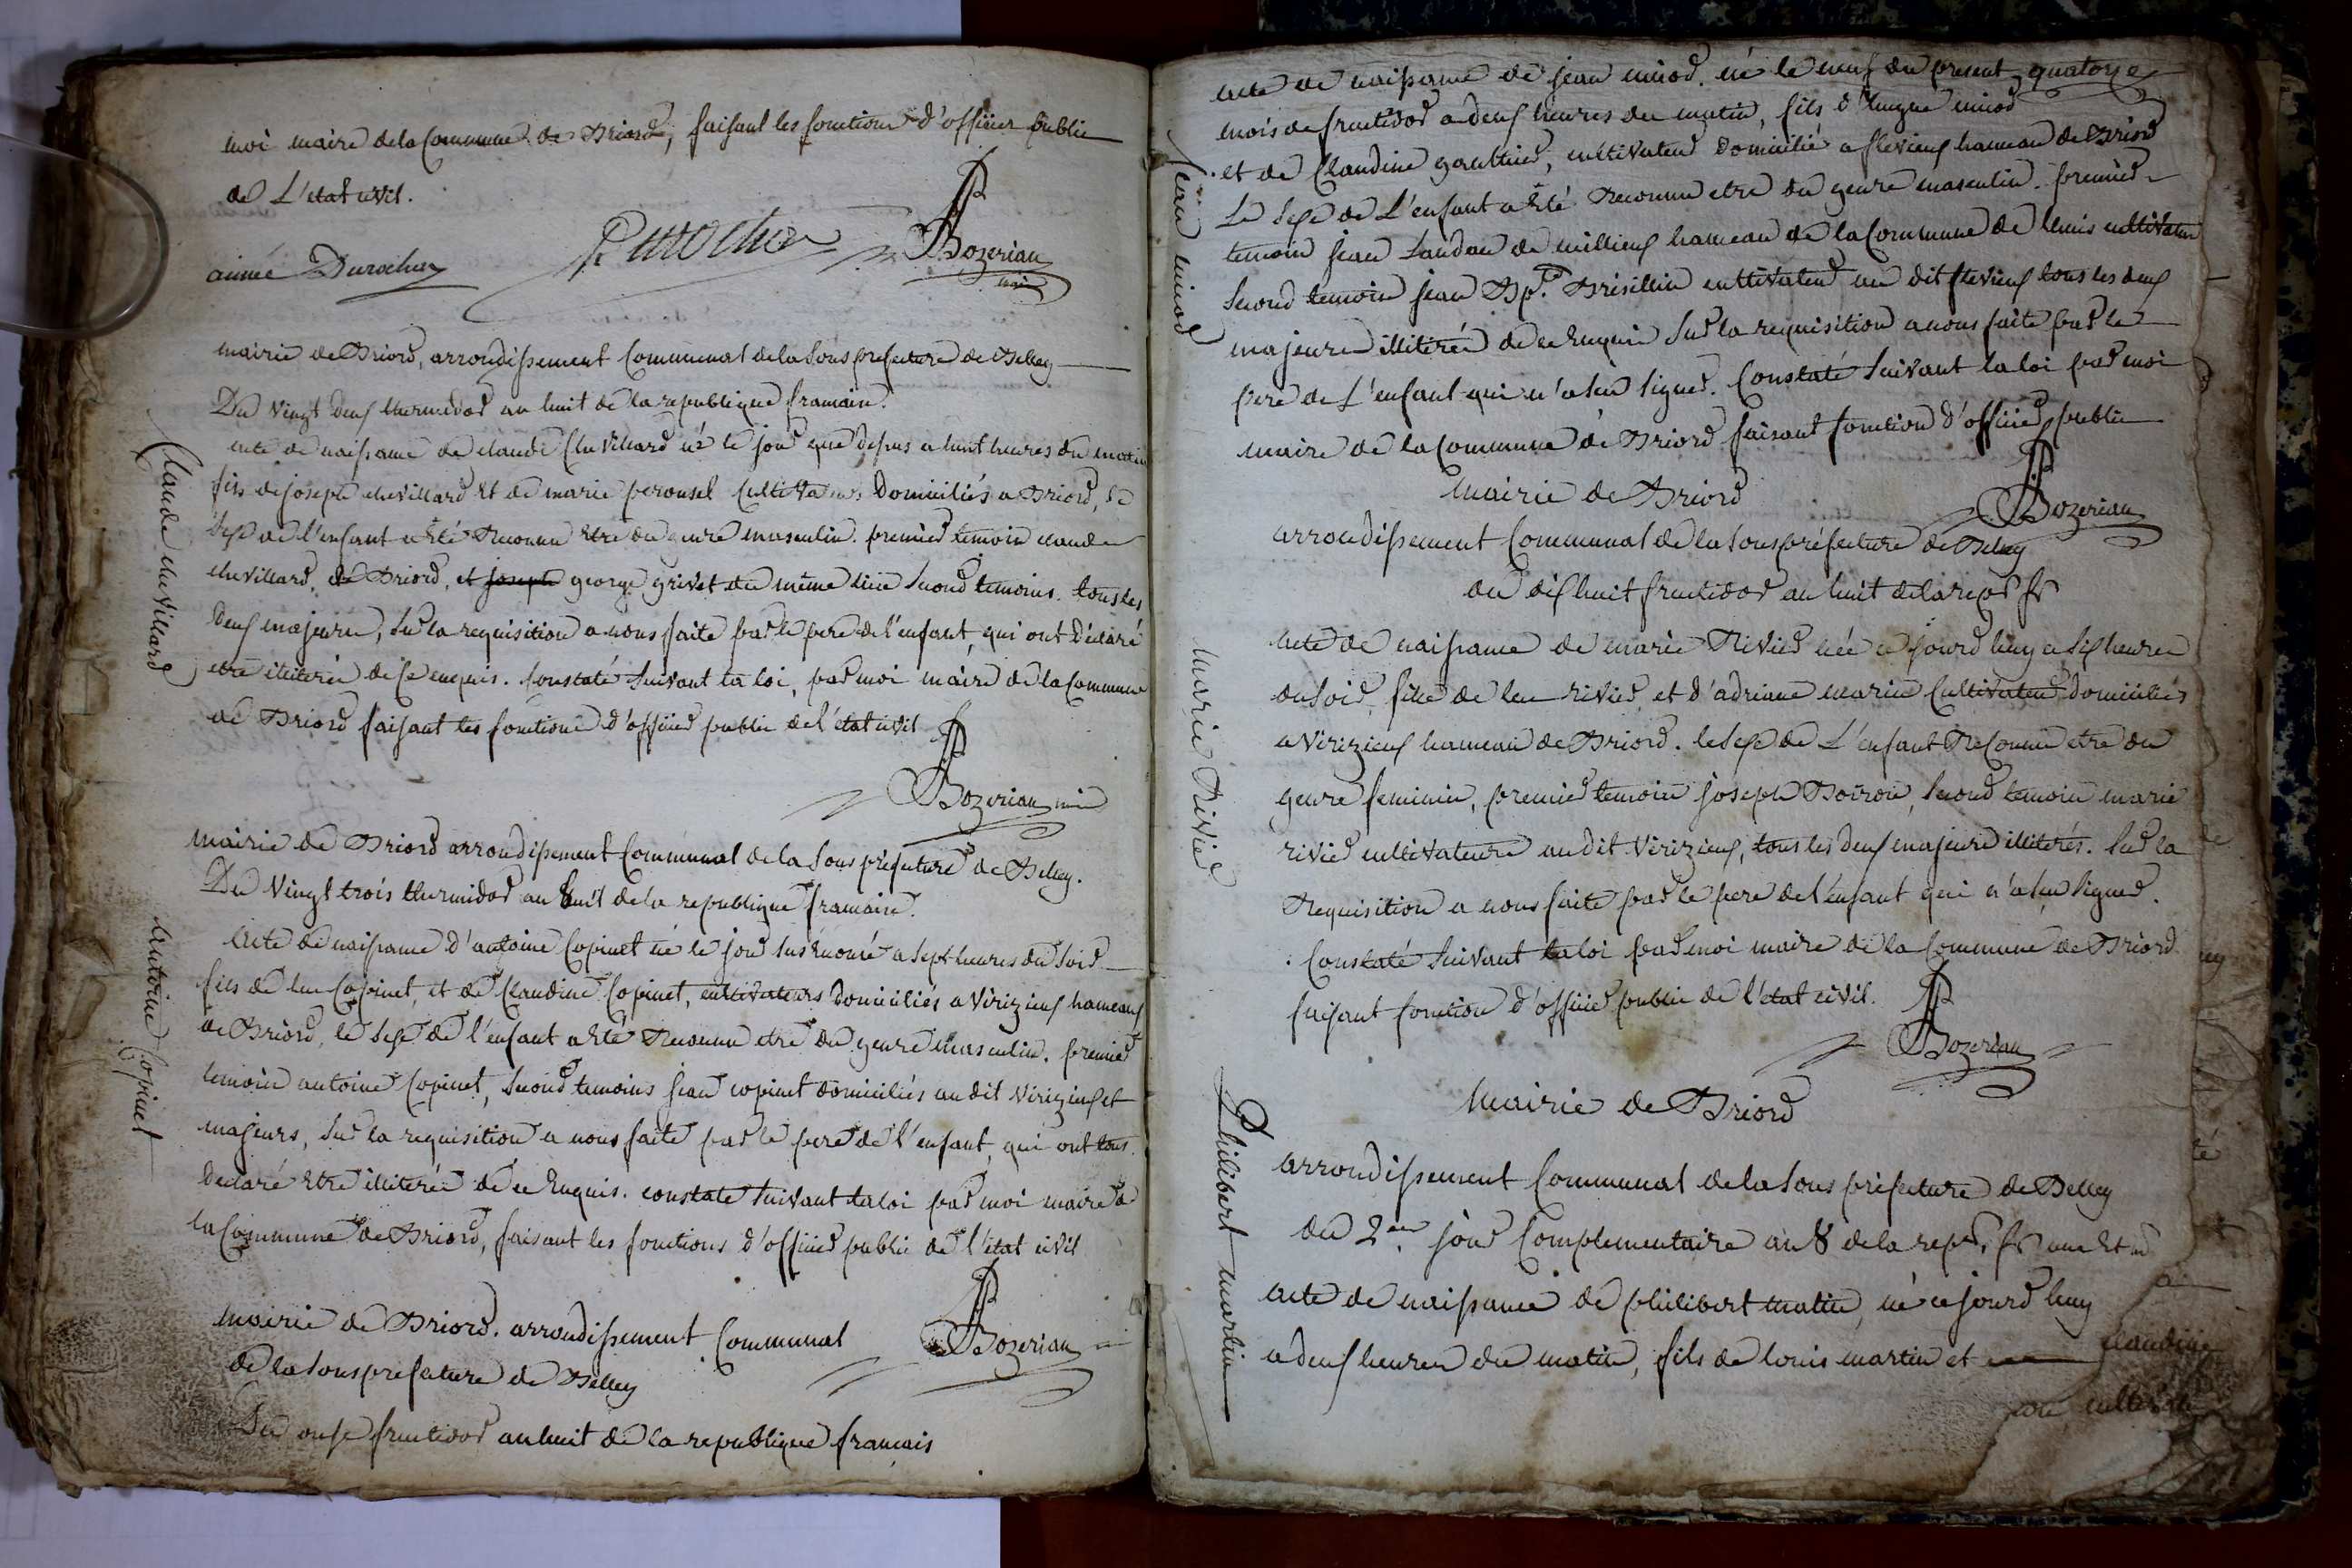 moi maire dela Commune de Briord, faisant les fonctions d'officier public
de L'etat civil.
aimée Durochez
Durochez
Bozerian
maire
mairie de Briord, arrondissement Communal dela sous prefecture de Belley
Du vingt deux thermidor an huit de la republique francaise.
acte de naissance de claude Chevillard né le jour que depus a huit heures du matin
fils de joseph chevillard et de marie perousel Cultivateurs Domiciliés a Briord, le
sexe de l'enfant a été Reconnu etre du genre masculin. premier temoin claude
chevillard, de Briord, et joseph george grivet du même lieu second temoins. tous les
deux majeures, sur la requisition a nous faite par le pere de l'enfant, qui ont déclaré
etre illiterés de ce enquis. Constaté Suivant la loi, par moi maire de la Commune
de Briord faisant les fonctions d'officier public de l'état civil
Claude chevillard
Bozerian
mairie de Briord arrondissement Communal de la sous prefecture de Belley.
Du Vingt trois thermidor an huit de la republique francaise.
Acte de naissance d'antoine Copinet né le jour susénoncé a sept heures du soir
fils de luc Copinet, et de Claudine Copinet, cultivateurs Domiciliés a Virizieux hameau
de Briord, le sexe de l'enfant a été Reconnu etre du genre masculin. premier
temoin antoine Copinet, second temoins jean copinet domiciliés au dit virizieux et
majeurs, sur la requisition a nous faite par le pere de l'enfant, qui ont tous
declaré etre illiterés de ce Enquis. constaté suivant la loi par moi maire de
la Commune de Briord, faisant les fonctions d'officier public de l'état civil
Antoine Copinet
Bozerian
mairie de Briord. arrondissement Communal
de la sousprefecture de Belley
Du onze fructidor an huit de la republique français
acte de naissance de jean minod. né le neuf du present quatorze
mois de fructidor a deux heures du matin, fils d'Eugne minod
et de Claudine gauthier, cultivateur domicilié a flevieux hameau de Briord
Le sexe de L'enfant a été Reconnu etre du genre masculin. premier
temoin jean Landau de millieux hameau de la Commune de lhuis cultivateur
second temoin jean Bpt. Brisillin cultivateur au dit flevieux tous les deux
majeures illiterés de ce Enquis sur la requisition a nous faite par le
pere de L'enfant qui n'a seu signer. Constaté suivant la loi par moi
maire de la Commune de Briord faisant fonction d'officier public
jean minod
Bozerian
mairie de Briord
arrondissement Communal de la sous préfecture de Belley
du dix huit fructidor an huit de la rep fr
acte de naissance de marie Rivier née ce jourd huy a six heures
du soir fille de luc rivier, et d'adriane marin Cultivateurs domiciliés
a Virizieux hameau de Briord. le sexe de L'enfant Reconnu etre du
genre feminin, premier temoin joseph Boiron, second temoin marie
rivier cultivateurs au dit Virizieux, tous les deux majeurs illiterés. sur la
Requisition a nous faite par le pere de l'enfant qui n'a seu signer.
Constaté suivant la loi par moi maire de la Commune de Briord
faisant fonction d'officier public de l'etat civil.
marie Rivier
Bozerian
mairie de Briord
arrondissement Communal de la sous préfecture de Belley
du 2me jour Complementaire an 8 de la rep. fr une et
acte de naissance de philibert matin, né ce jourd huy
a deux heures du matin, fils de louis martin et
claudine
Philibert martin